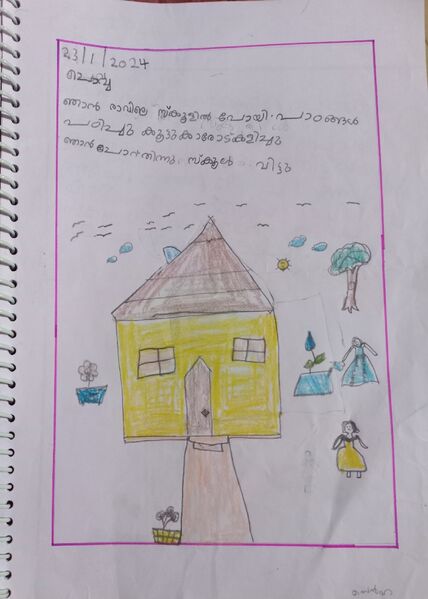 23/1/2024
ചൊവ്വ
ഞാൻ രാവിലെ സ്കൂളിൽ പോയി. പാഠങ്ങൾ
പഠിച്ചു കൂട്ടുകാരോട്കളിച്ചു
ഞാൻ ചോറ്തിന്നു. സ്കൂൾ വിട്ടു